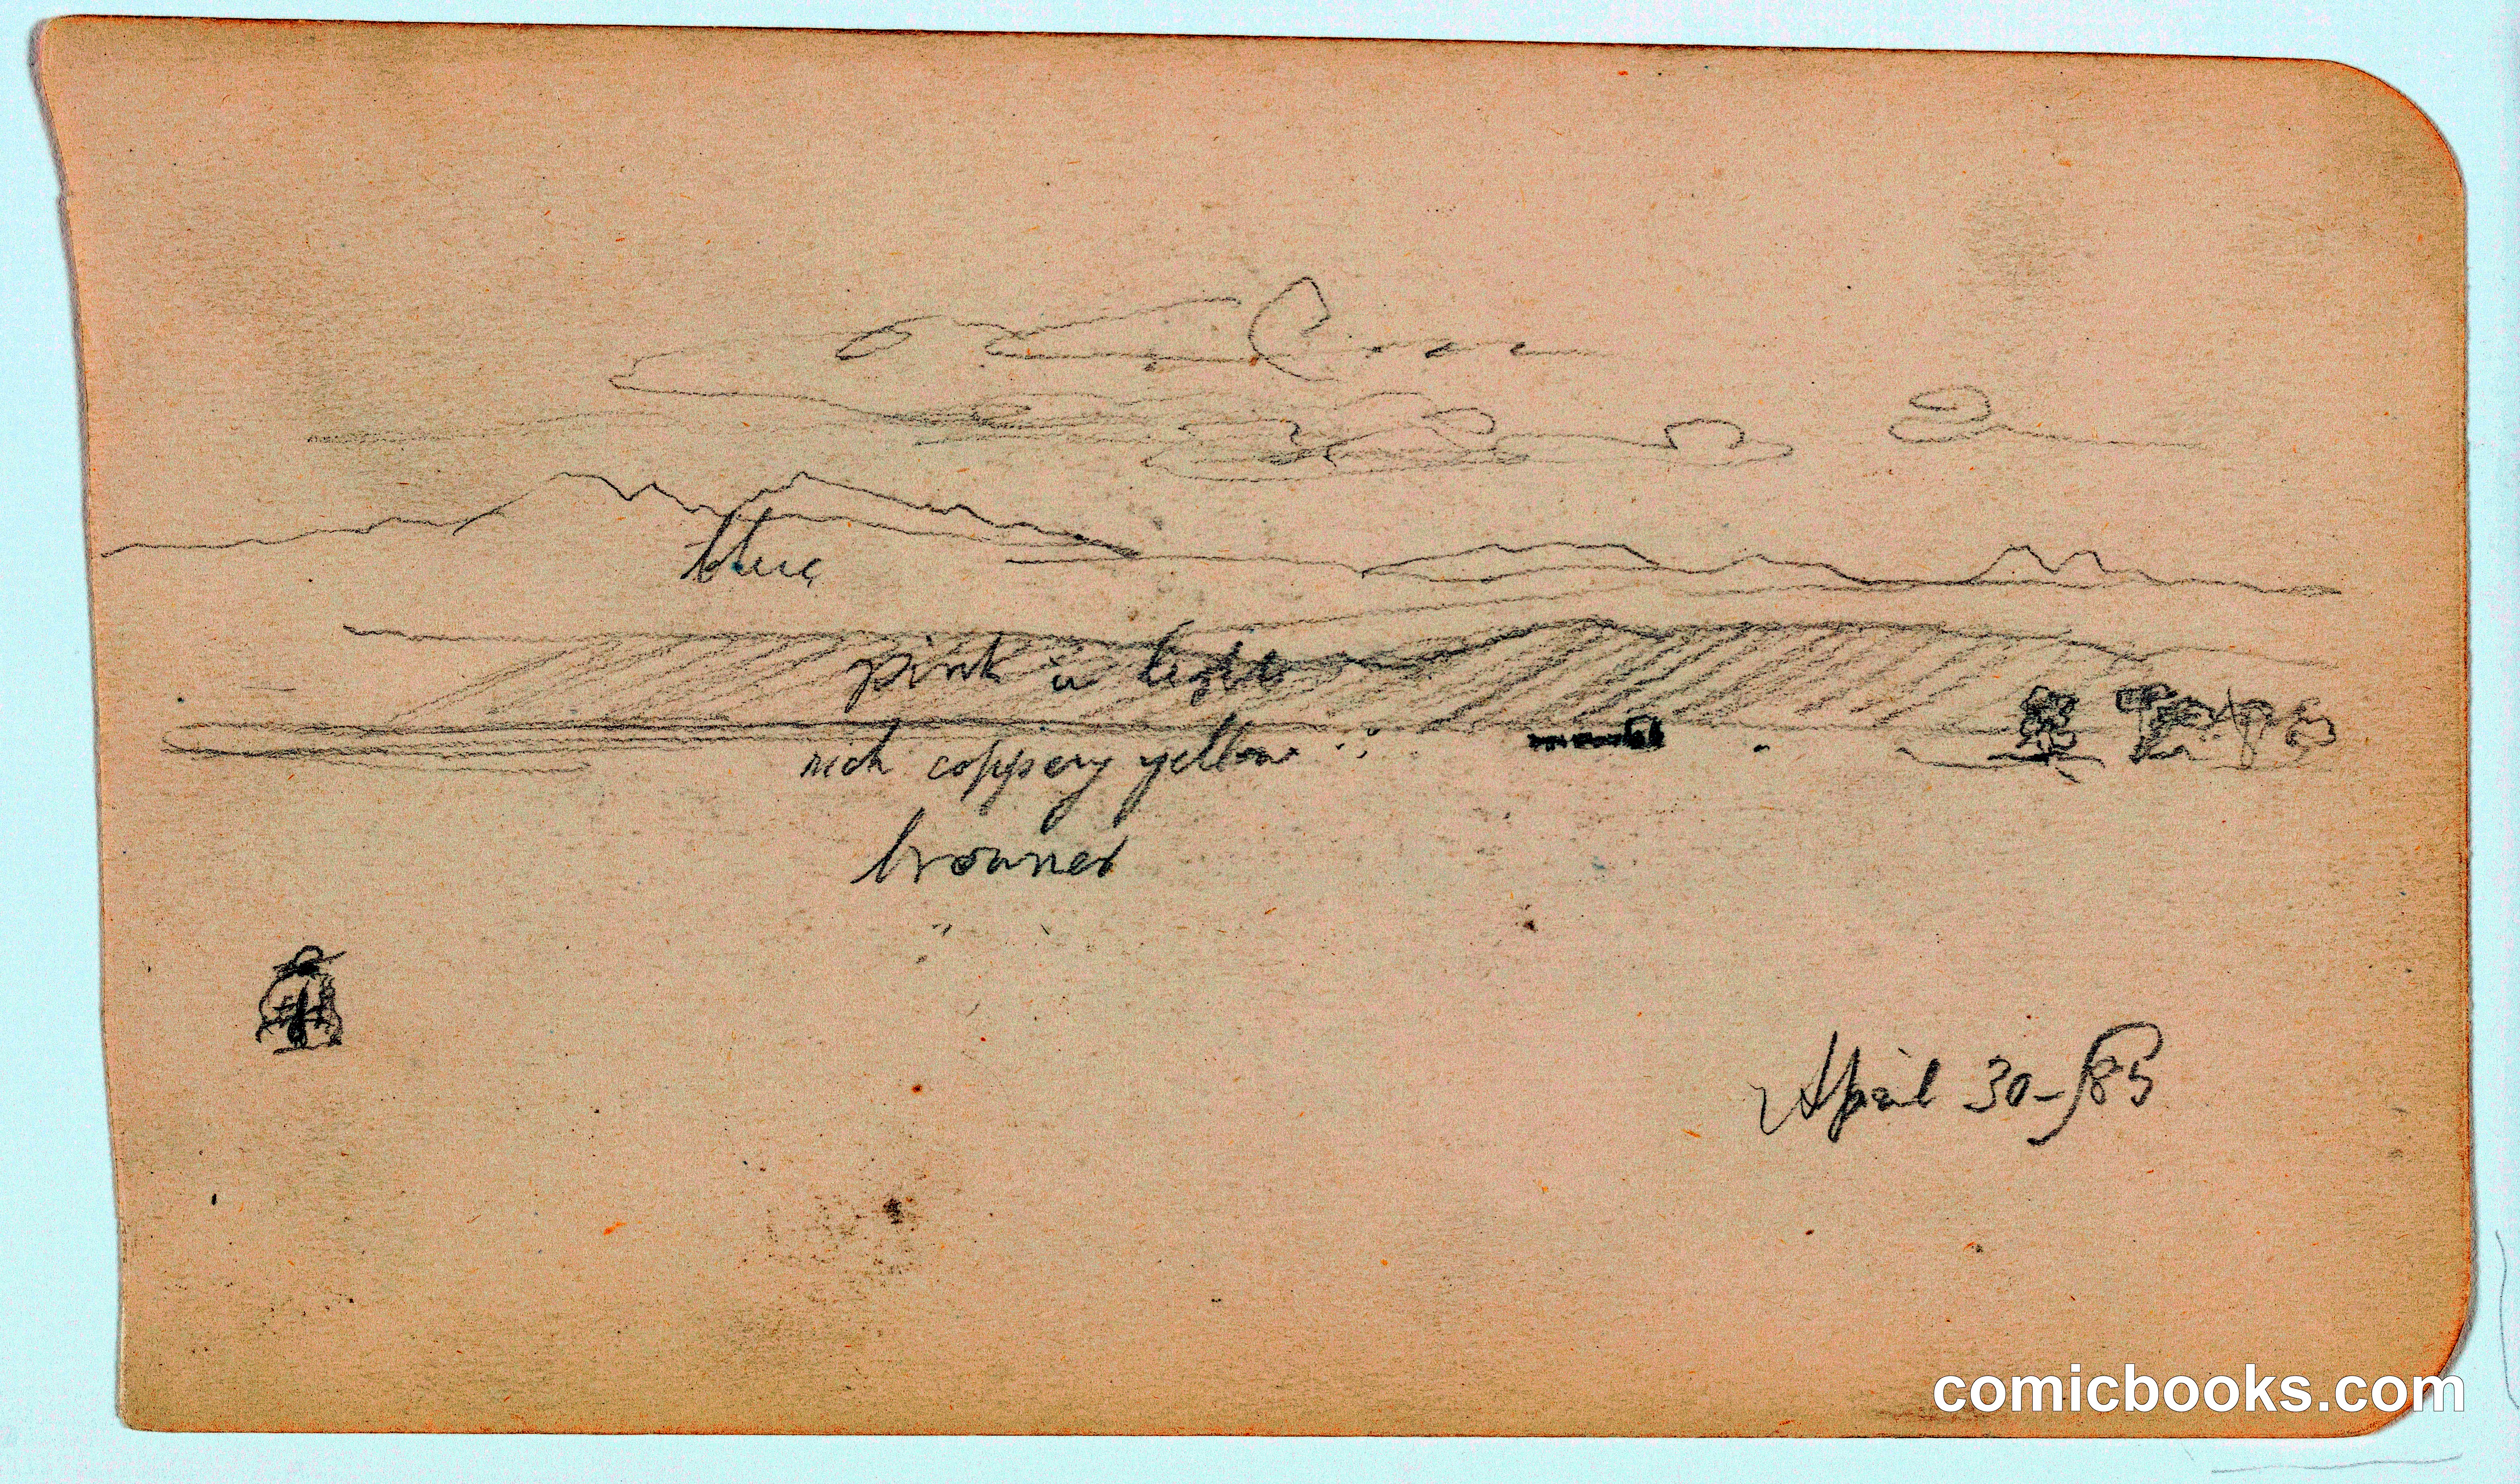 blue
pink in light
rich coppery yellow
browner
April 30-/85
comicbooks.com